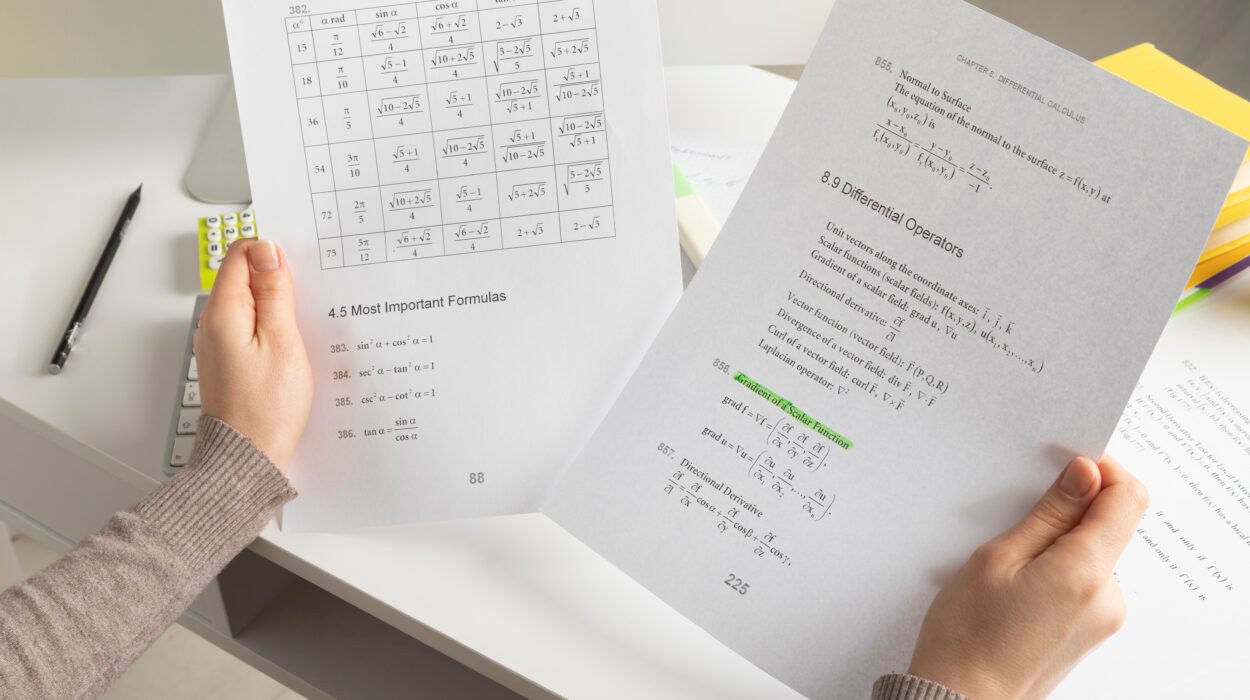 382.
α° α rad sin α cos α
15 π/12 (√6−√2)/4 (√6+√2)/4 2−√3 2+√3
18 π/10 (√5−1)/4 √(10+2√5)/4 √((5−2√5)/5) √(5+2√5)
36 π/5 √(10−2√5)/4 (√5+1)/4 √(10−2√5)/(√5+1) (√5+1)/√(10−2√5)
54 3π/10 (√5+1)/4 √(10−2√5)/4 (√5+1)/√(10−2√5) √(10−2√5)/(√5+1)
72 2π/5 √(10+2√5)/4 (√5−1)/4 √(5+2√5) √((5−2√5)/5)
75 5π/12 (√6+√2)/4 (√6−√2)/4 2+√3 2−√3
4.5 Most Important Formulas
383. sin² α + cos² α = 1
384. sec² α − tan² α = 1
385. csc² α − cot² α = 1
386. tan α = sin α / cos α
88
CHAPTER 8. DIFFERENTIAL CALCULUS
855. Normal to Surface
The equation of the normal to the surface z = f(x, y) at
(x₀, y₀, z₀) is
(x − x₀)/fₓ(x₀, y₀) = (y − y₀)/f_y(x₀, y₀) = (z − z₀)/−1.
8.9 Differential Operators
Unit vectors along the coordinate axes: i⃗, j⃗, k⃗
Scalar functions (scalar fields): f(x, y, z), u(x₁, x₂,..., xₙ)
Gradient of a scalar field: grad u, ∇u
Directional derivative: ∂f/∂l
Vector function (vector field): F⃗(P, Q, R)
Divergence of a vector field: div F⃗, ∇·F⃗
Curl of a vector field: curl F⃗, ∇×F⃗
Laplacian operator: ∇²
856. Gradient of a Scalar Function
grad f = ∇f = (∂f/∂x, ∂f/∂y, ∂f/∂z),
grad u = ∇u = (∂u/∂x₁, ∂u/∂x₂,..., ∂u/∂xₙ).
857. Directional Derivative
∂f/∂l = ∂f/∂x cos α + ∂f/∂y cos β + ∂f/∂z cos γ,
225
832.
Second Derivative Test for Local Extrema
if and only if f′(x) is
if and only if f′(x) is